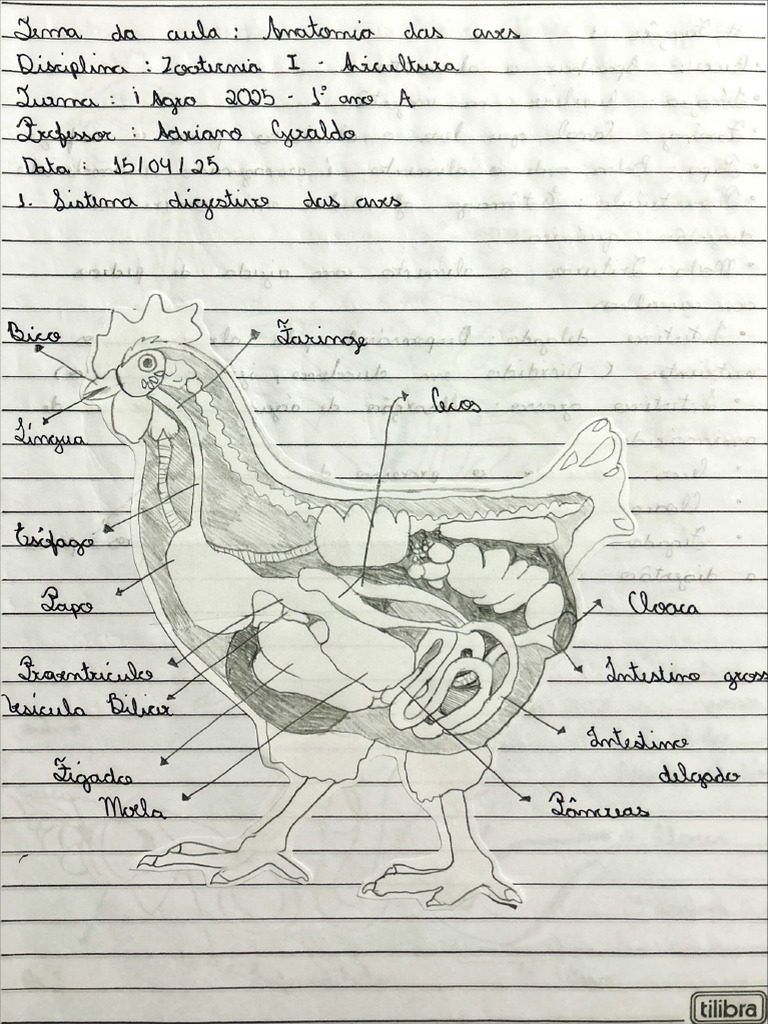 Tema da aula : Anatomia das aves
Disciplina : Zootecnia I - Avicultura
Turma : i Agro 2025 - 1° ano A
Professor : Adriano Geraldo
Data : 15/04/25
1. Sistema digestivo das aves
Bico
Faringe
Cecos
Língua
Esôfago
Papo
Cloaca
Proventrículo
Intestino gross
Vesícula Biliar
Intestino
delgado
Fígado
Moela
Pâncreas
tilibra